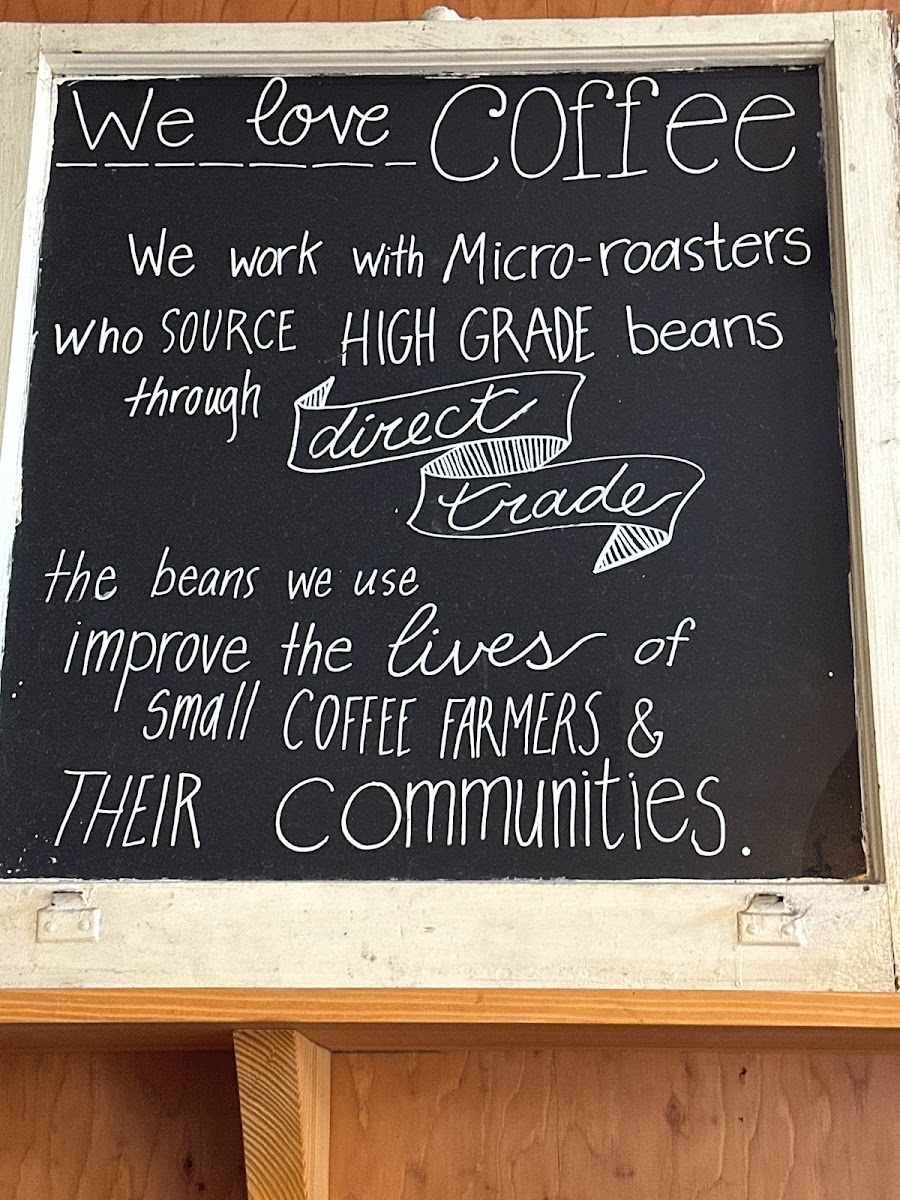 We love Coffee
We work with Micro-roasters
who SOURCE HIGH GRADE beans
through direct
trade
the beans we use
improve the lives of
small COFFEE FARMERS &
THEIR Communities.